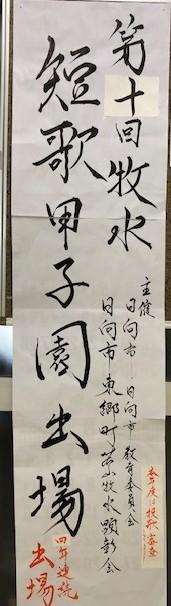 第十回牧水
短歌甲子園出場
主催
日向市・日向市教育委員会
日向市東郷町若山牧水顕彰会
本年度は投歌審査
四年連続
出場